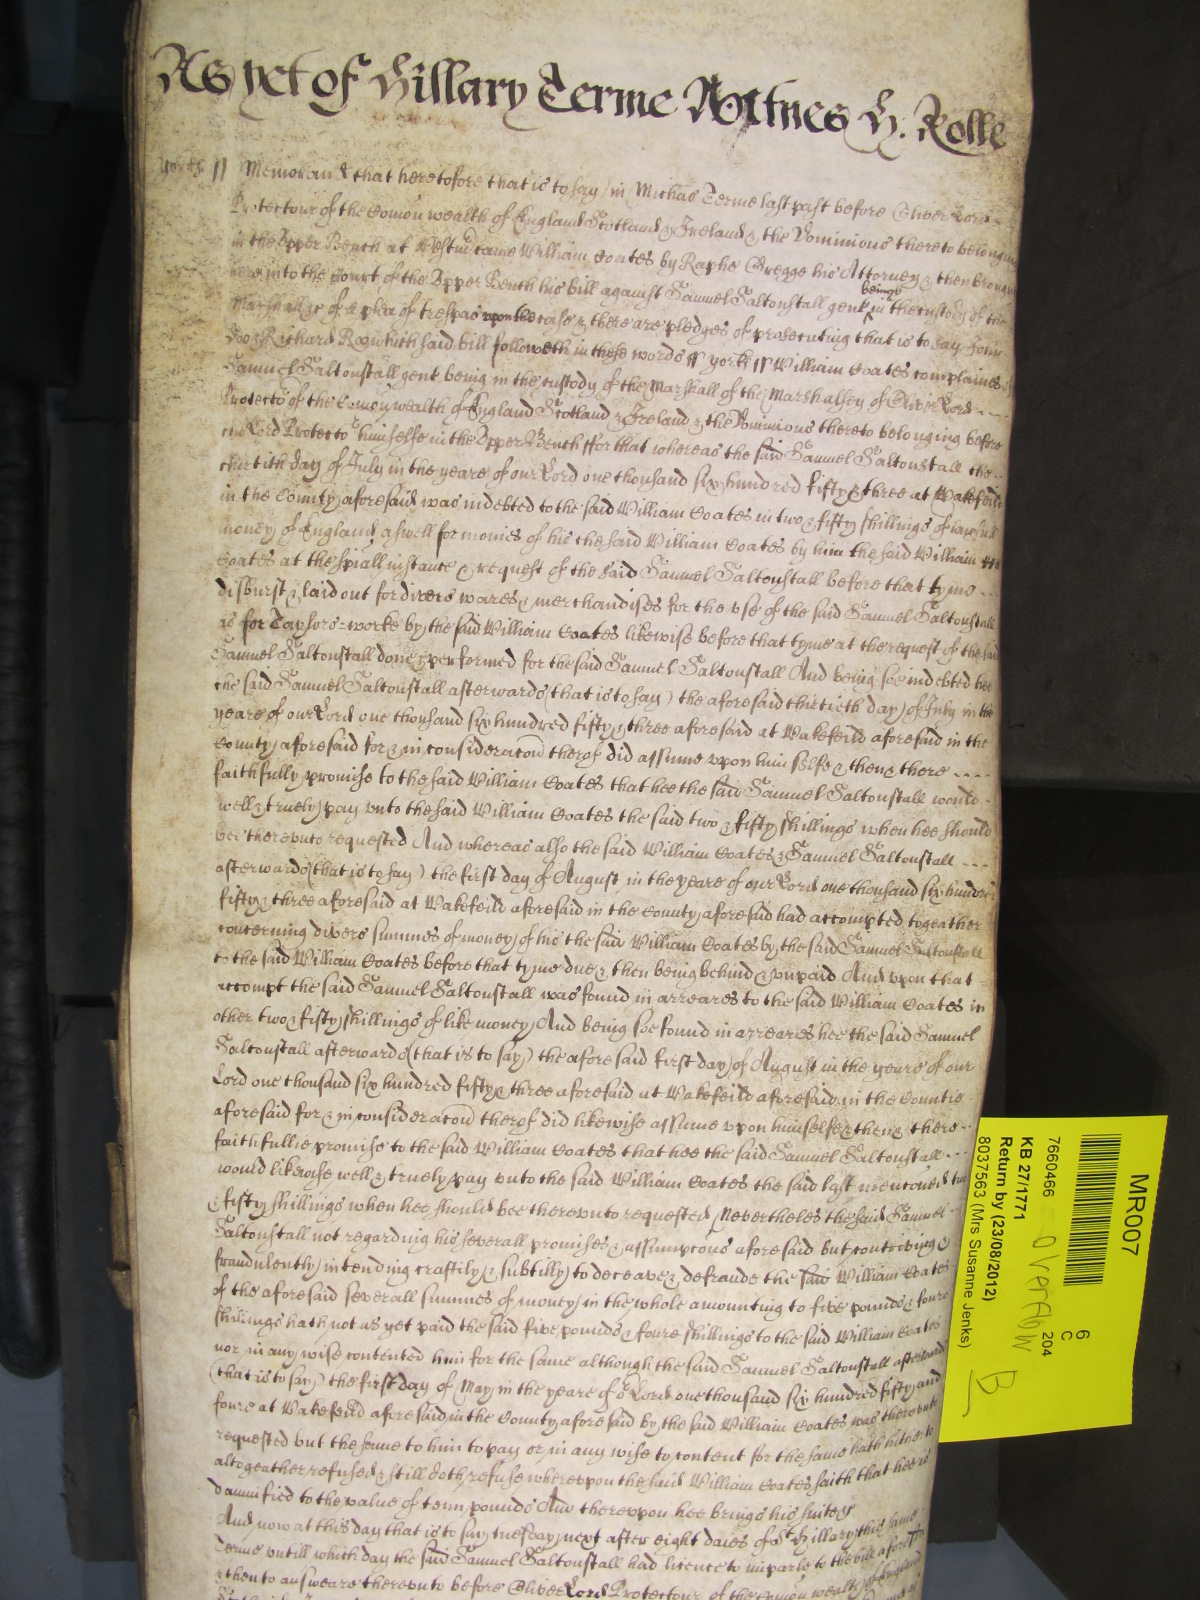 As yet of Hillary Terme Witnes H. Rolle
yorke ss Memorand that heretofore that is to say in Michas Terme last past before Oliver Lord
Protectour of the Comon wealth of England Scotland & Ireland & the Dominions thereto belonging
in the Upper Bench at Westm came William Coates by Raphe Gregge his Attorney & then brought
here into the Court of the Upper Bench his bill against Samuel Saltonstall gent being in the custody of the
Marshall &c of a plea of trespas upon the case & there are pledges of prosecuting that is to say John
Doo & Richard Roo which said bill followeth in these words ss yorke ss William Coates complaines of
Samuel Saltonstall gent being in the custody of the Marshall of the Marshalsey of Oliver Lord
Protector of the Comonwealth of England Scotland & Ireland & the Dominions thereto belonging before
the Lord Protector himselfe in the Upper Bench ffor that whereas the said Samuel Saltonstall the
thirtith day of July in the yeare of our Lord one thousand six hundred fifty & three at Wakefeild
in the County aforesaid was indebted to the said William Coates in two & fifty shillings of lawfull
money of England aswell for monies of his the said William Coates by him the said William
Coates at the spiall instance & request of the said Samuel Saltonstall before that tyme
disburst & laid out for divers wares & merchandises for the vse of the said Samuel Saltonstall
as for Taylors-worke by the said William Coates likewise before that tyme at the request of the said
Samuel Saltonstall done & performed for the said Samuel Saltonstall And being soe indebted hee
the said Samuel Saltonstall afterwards (that is to say) the aforesaid thirtieth day of July in the
yeare of our Lord one thousand six hundred fifty & three aforesaid at Wakefeild aforesaid in the
County aforesaid for & in consideracon therof did assume vpon him selfe & then & there
faithfully promise to the said William Coates that hee the said Samuel Saltonstall would
well & truely pay vnto the said William Coates the said two & fifty shillings when hee should
bee therevnto requested And whereas also the said William Coates & Samuel Saltonstall
afterwards (that is to say) the first day of August in the yeare of our Lord one thousand six hundred
fifty & three aforesaid at Wakefeild aforesaid in the County aforesaid had accompted togeather
concerning divers summes of money of his the said William Coates by the said Samuel Saltonstall
to the said William Coates before that tyme due & then being behind & vnpaid And vpon that
accompt the said Samuel Saltonstall was found in arreares to the said William Coates in
other two & fifty shillings of like money And being soe found in arreares hee the said Samuel
Saltonstall afterwards (that is to say) the afore said first day of August in the yeare of our
Lord one thousand six hundred fifty & three aforesaid at Wakefeild aforesaid in the Countie
aforesaid for & in consideracon therof did likewise assume vpon himselfe & then & there
faithfullie promise to the said William Coates that hee the said Samuel Saltonstall
would likewise well & truely pay vnto the said William Coates the said last mencoued two
& fifty shillings when hee should bee therevnto requested Nevertheles the said Samuel
Saltonstall not regarding his severall promises & assumpcons aforesaid but contriving &
fraudulently intending craftily & subtilly to deceave & defraude the said William Coates
of the aforesaid severall summes of money in the whole amounting to five pounds & foure
shillings hath not as yet paid the said five pounds & foure shillings to the said William Coates
nor in any wise contented him for the same although the said Samuel Saltonstall afterwards
(that is to say) the first day of May in the yeare of or Lord one thousand six hundred fifty and
foure at Wakefeild aforesaid in the County aforesaid by the said William Coates was therevnto
requested but the same to him to pay or in any wise to content for the same hath hitherto
altogeather refused & still doth refuse wherevpon the said William Coates saith that hee is
damnified to the value of tenn pounds And therevpon hee brings his suite &c
And now at this day that is to say tuesday next after eight daies of St Hillary this same
Terme vntill which day the said Samuel Saltonstall had licence to imparle to the bill aforesaid
& then to answeare therevnto before Oliver Lord Protectour of the Comon wealth of England
MR007
6
C
204
7660466
KB 27/1771
Return by (23/08/2012)
8037563 (Mrs Susanne Jenks)
B